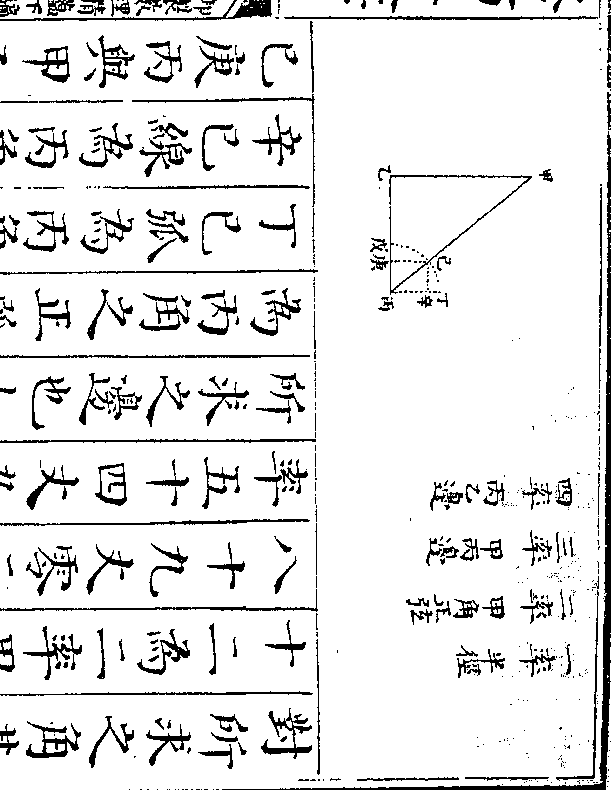 一率 半徑
二率 甲角正弦
三率 甲丙邊
四率 丙乙邊
甲
乙
己
戊庚
丁辛
丙
對所求之角
十二為二率甲
八十九丈零
率五十四丈
所求之邊也
為丙角之正
丁己弧為丙
辛己線為丙
己庚丙與甲